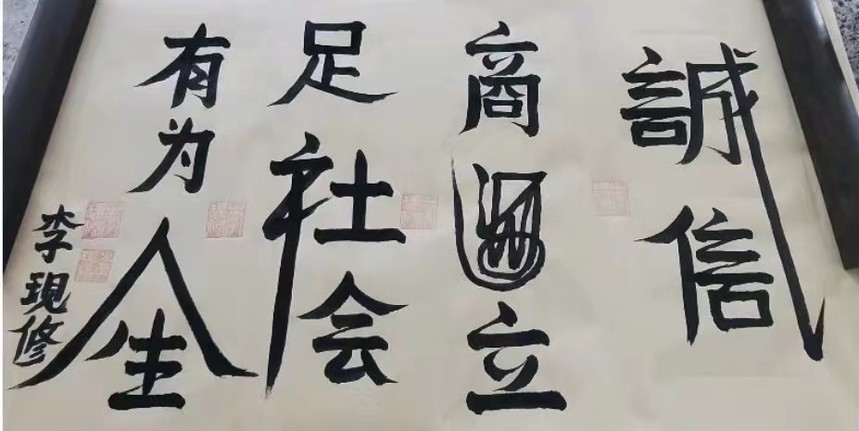 誠信
商 立
足社会
有为人生
李現修